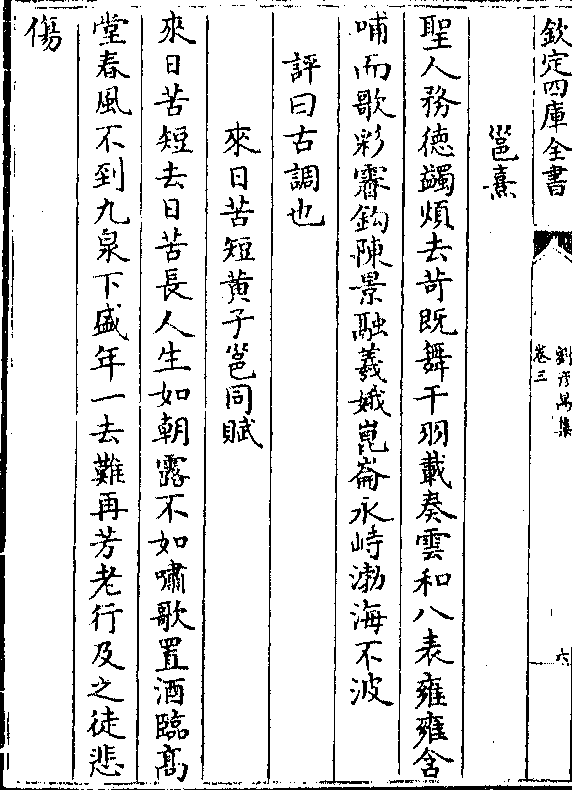 欽定四庫全書
劉彥昺集
卷三
六
邕熹
聖人務德蠲煩去苛既舞干羽載奏雲和八表雍雍含
哺而歌彩騫鈎陳景融羲娥崑崙永峙渤海不波
評曰古調也
來日苦短黄子邕同賦
來日苦短去日苦長人生如朝露不如嘯歌置酒臨髙
堂春風不到九泉下盛年一去難再芳老行及之徒悲
傷